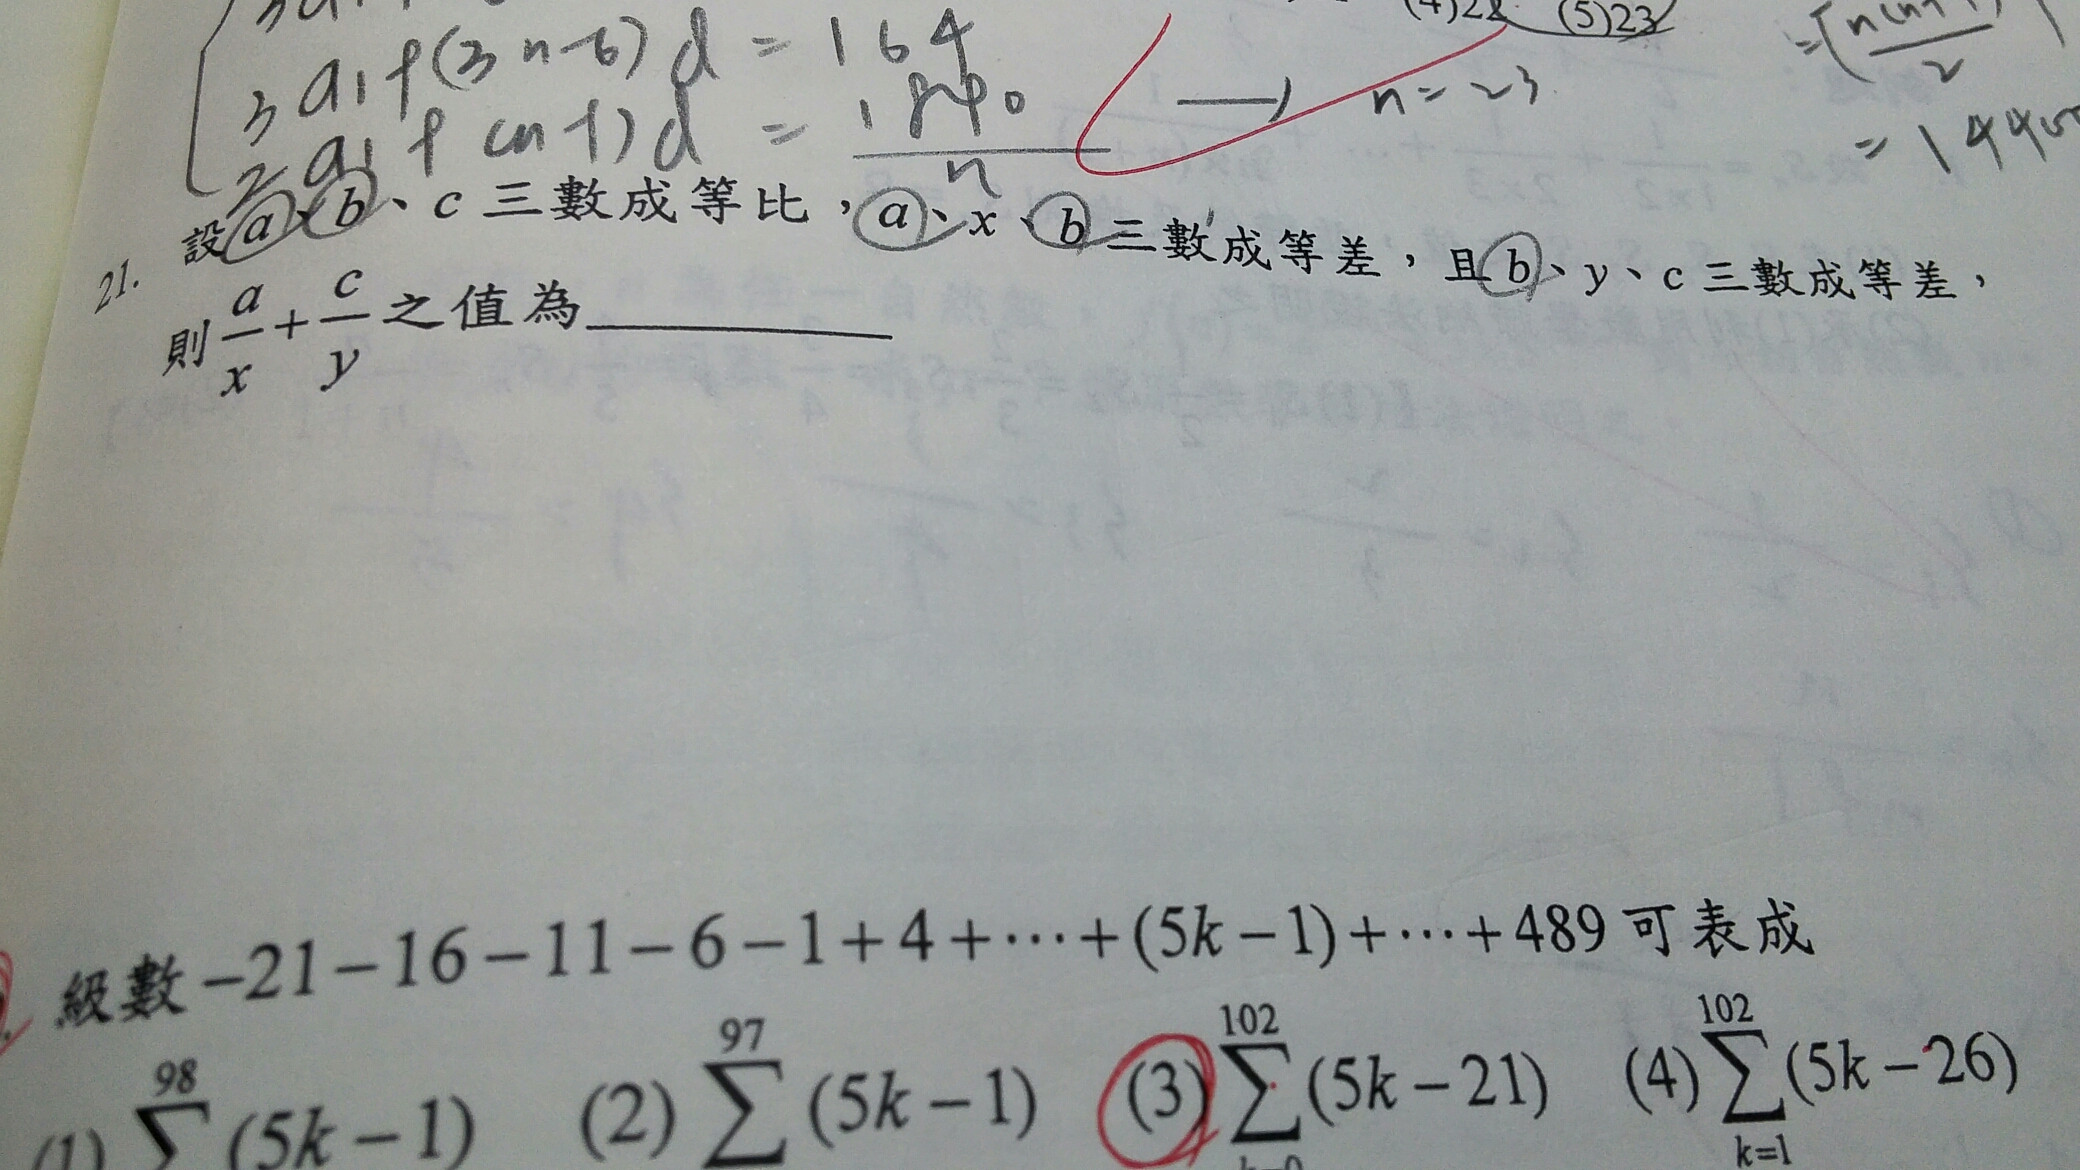 (4)22 (5)23
3a₁+(3n-6)d = 164
2a₁+(n-1)d = 1840/n → n=23
= [n(n+1)/2
= 14400
21. 設 a、b、c 三數成等比，a、x、b 三數成等差，且 b、y、c 三數成等差，
則 a/x + c/y 之值為
級數 −21−16−11−6−1+4+⋯+(5k−1)+⋯+489 可表成
(1) 98 ∑ (5k−1) (2) 97 ∑ (5k−1) (3) 102 ∑ (5k−21) (4) 102 ∑ k=1 (5k−26)